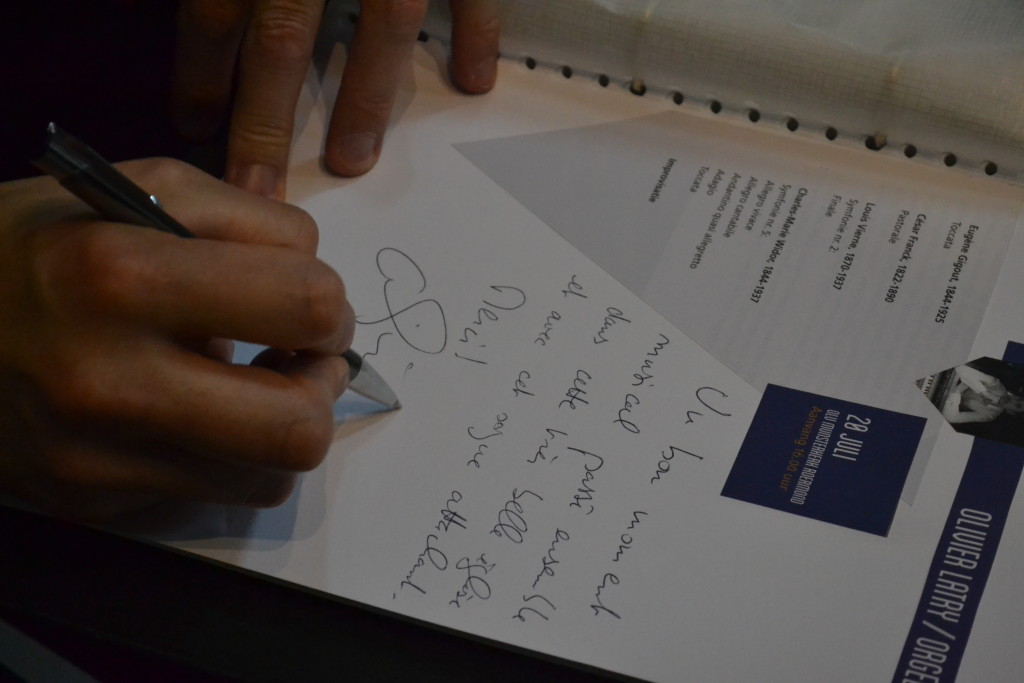 OLIVIER LATRY / ORGEL
20 JULI
OLV MUNSTERKERK ROERMOND
Aanvang 16.00 uur
Eugène Gigout, 1844-1925
Toccata
César Franck, 1822-1890
Pastorale
Louis Vierne, 1870-1937
Symfonie nr. 2:
Finale
Charles-Marie Widor, 1844-1937
Symfonie nr. 5:
Allegro vivace
Allegro cantabile
Andantino quasi allegretto
Adagio
Toccata
Improvisatie
Un bon moment
musical passé ensemble
dans cette très belle église
et avec cet orgue attachant.
Merci!